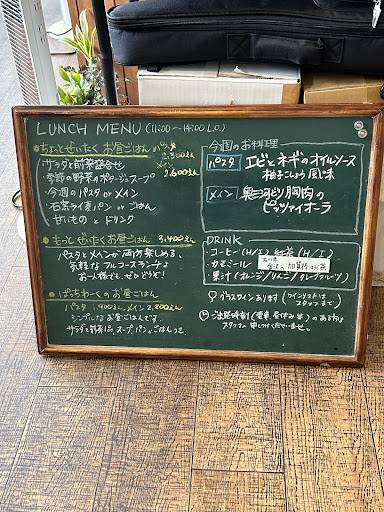 LUNCH MENU (11:00～14:00 L.O.)
• ちょっとぜいたく お昼ごはん パスタ 2,300えん
メイン 2,600えん
・サラダと前菜盛合せ
・季節の野菜のポタージュスープ
・今週のパスタ or メイン
・石窯ライ麦パン or ごはん
・甘いもの と ドリンク
• もっと ぜいたく お昼ごはん 3,400えん
パスタとメインが 両方楽しめる、
気軽な フルコースランチ♪
お一人様でも、ぜひどうぞ!
• ぱっちわーくの お昼ごはん
パスタ 1,900えん、メイン 2,200えん
シンプルな お昼ごはんです。
サラダと前菜1品、スープ、パン or ごはんつき
今週のお料理
パスタ エビとネギのオイルソース
柚子こしょう風味
メイン 奥三河どり胸肉の
ピッツァイオーラ
DRINK
・コーヒー(H/I) 紅茶(H/I)
・カモミール
・果汁(オレンジ/りんご/グレープフルーツ)
石川県
金沢の 加賀棒ほうじ茶
グラスワイン あります (ワインリストは
スタッフまで)
ご出発時刻(電車、昼休み 等)のある方は
スタッフに 申し付けくださいませ